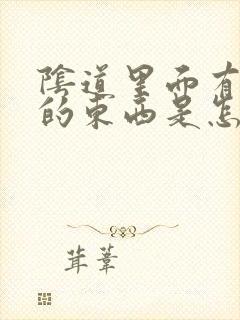 陰道里面有
的東西是怎
茸葦